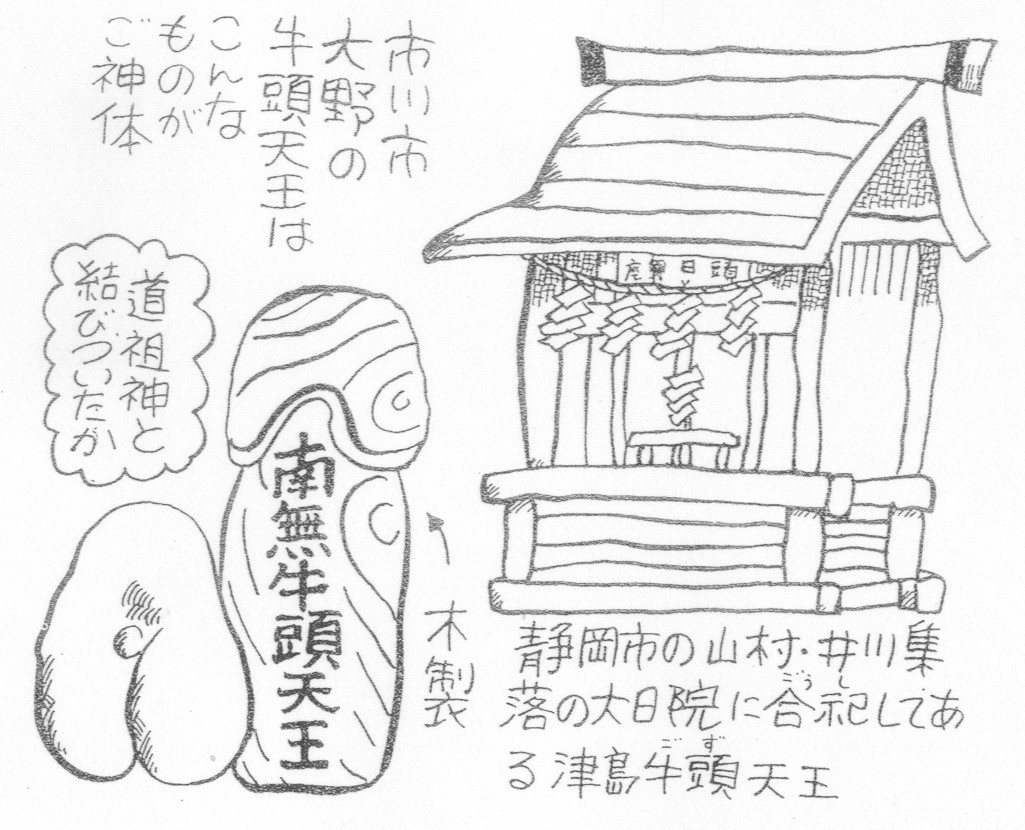 市川市
大野の
牛頭天王は
こんな
ものが
ご神体
道祖神と
結びついたか
南無牛頭天王
木製
静岡市の山村・井川集
落の大日院に合祀してあ
ごうし
る津島牛頭天王
ごず